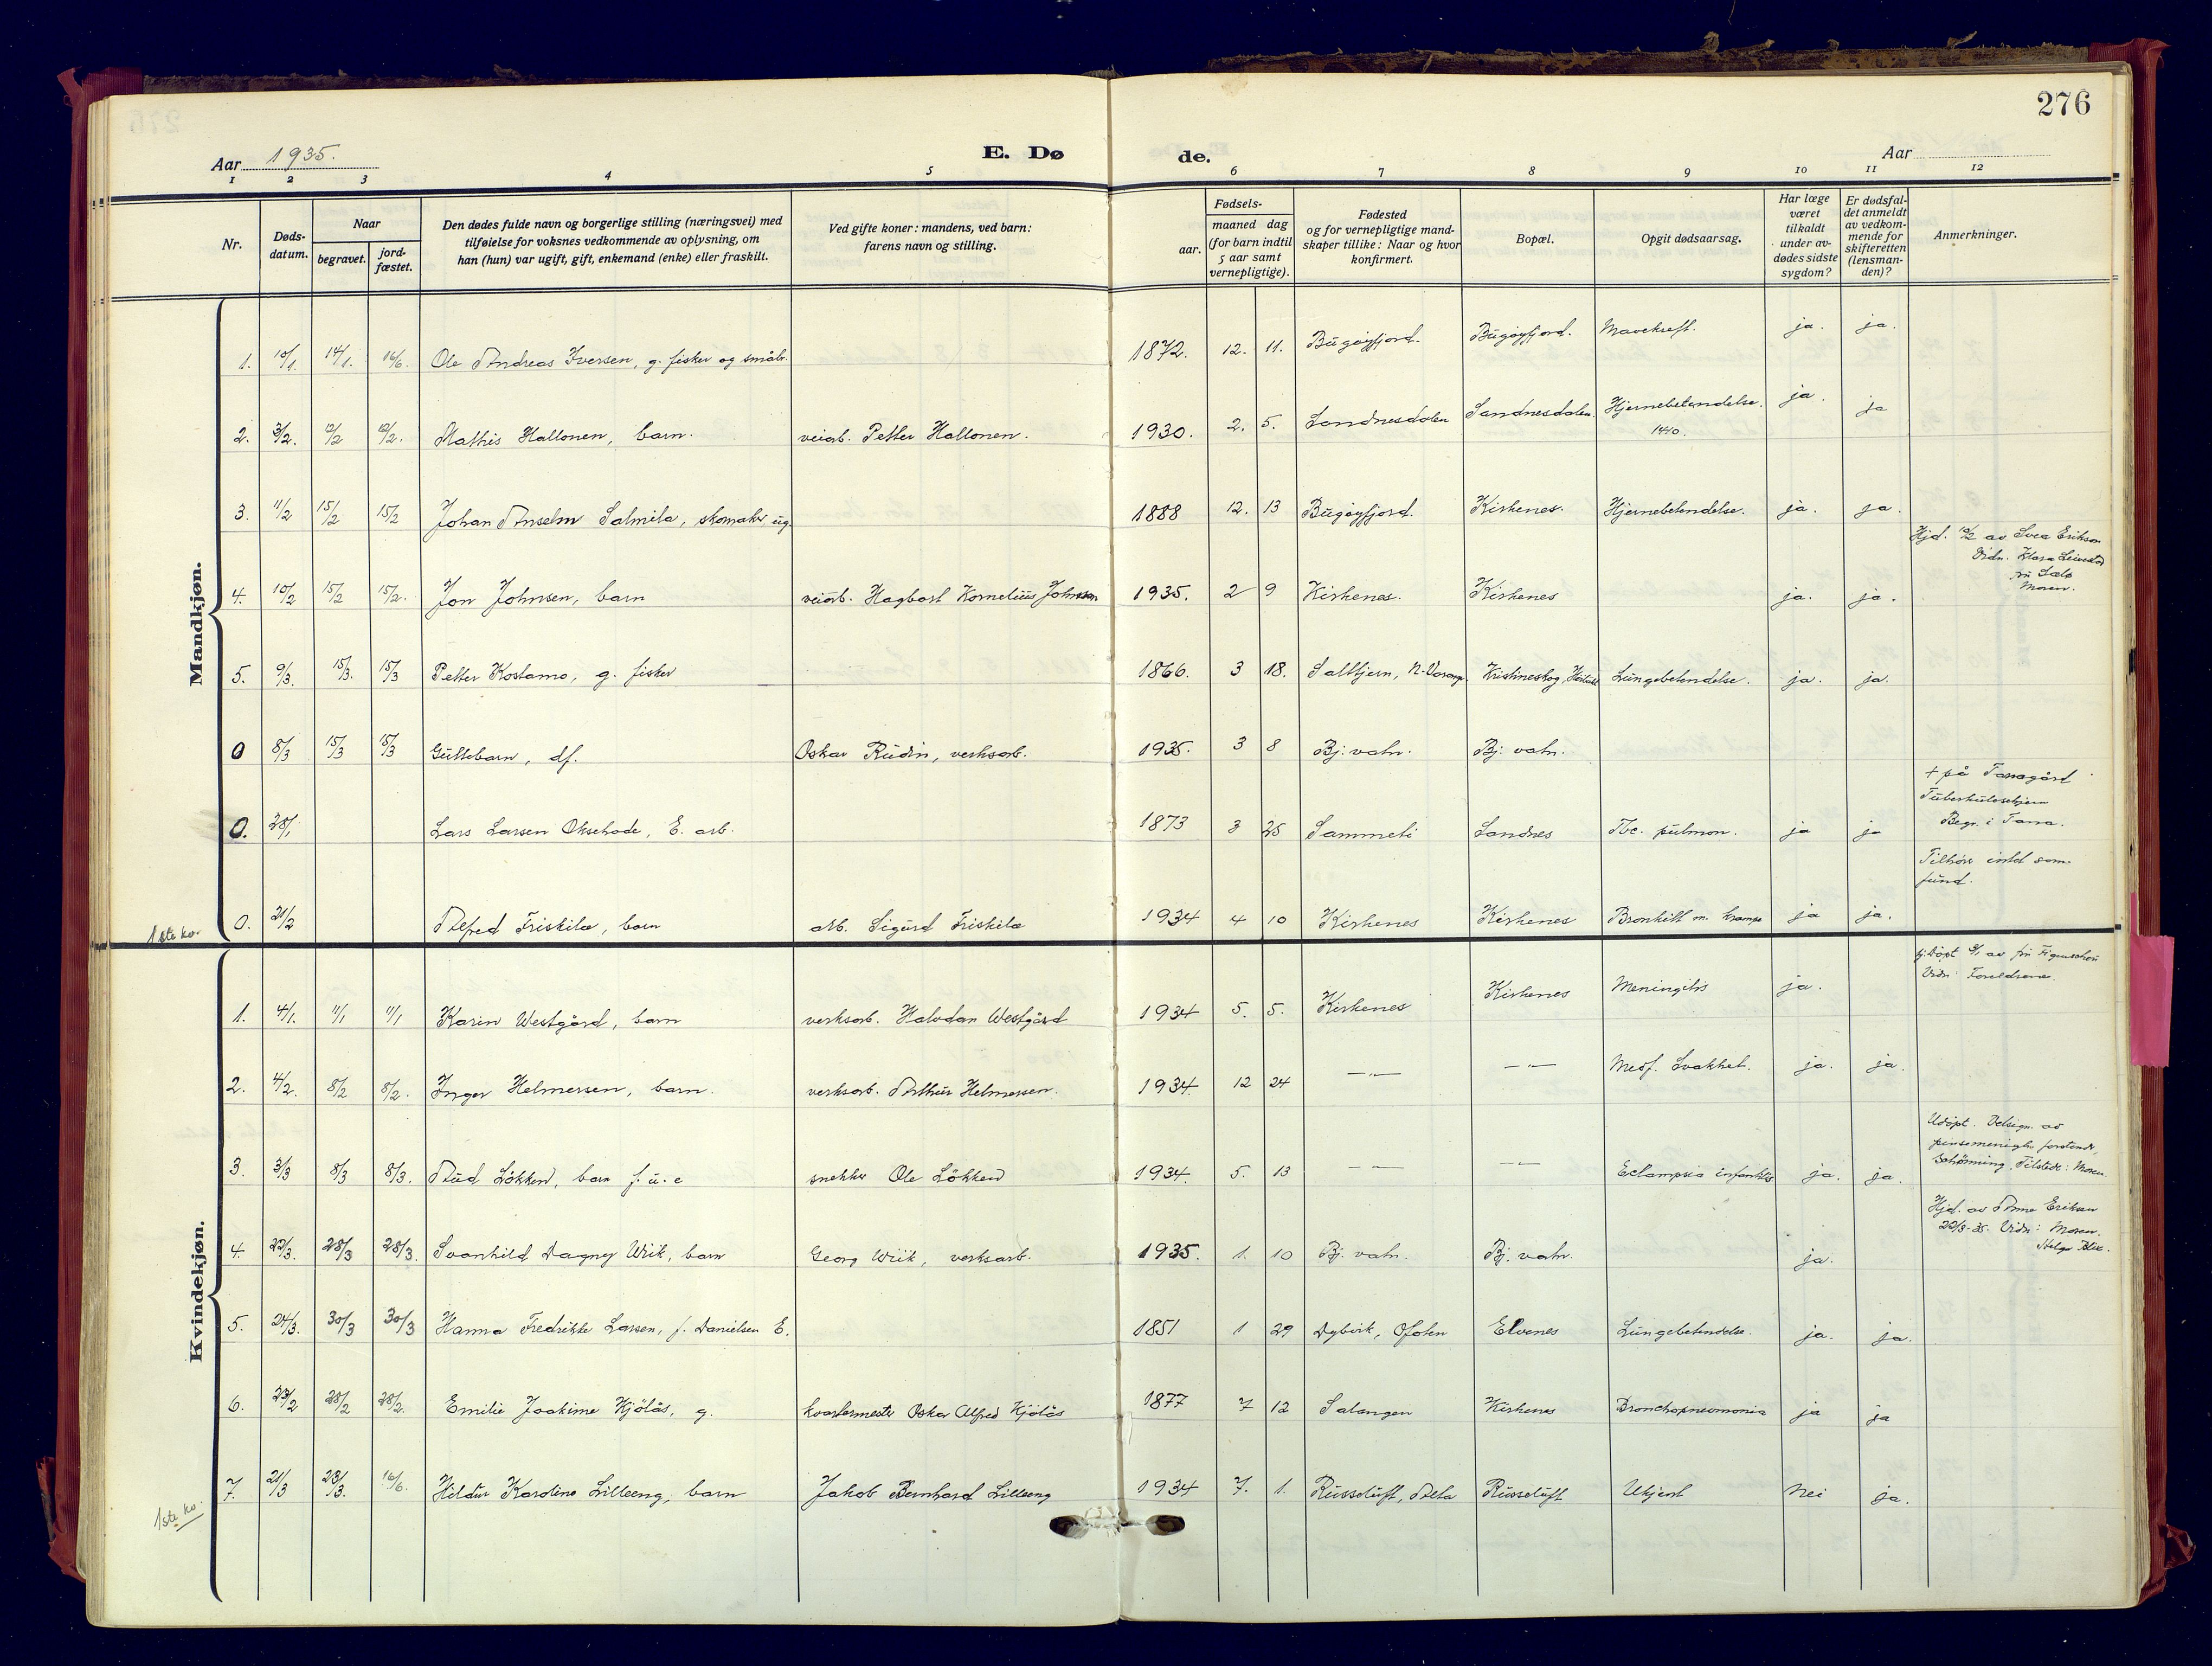 276
Aar 1935.
E. Dø
de.
Aar
1 2 3 4 5 6 7 8 9 10 11 12
Nr.
Døds-
datum.
Naar
begravet.
jord-
fæstet.
Den dødes fulde navn og borgerlige stilling (næringsvei) med
tilføielse for voksnes vedkommende av oplysning, om
han (hun) var ugift, gift, enkemand (enke) eller fraskilt.
Ved gifte koner: mandens, ved barn:
farens navn og stilling.
Fødsels-
aar.
maaned dag
(for barn indtil
5 aar samt
vernepligtige).
Fødested
og for vernepligtige mand-
skaper tillike: Naar og hvor
konfirmert.
Bopæl.
Opgit dødsaarsag.
Har læge
været
tilkaldt
under av-
dødes sidste
sygdom?
Er dødsfal-
det anmeldt
av vedkom-
mende for
skifteretten
(lensman-
den)?
Anmerkninger.
Mandkjøn.
1. 10/1. 14/1. 16/6. Ole Andreas Iversen, g. fisker og småbr. 1872. 12. 11. Bugøyfjord. Bugøyfjord. Mavekreft. ja. ja.
2. 3/2. 12/2 12/2. Mathis Hallonen, barn. veiarb. Petter Hallonen. 1930. 2. 5. Sandnesdalen Sandnesdalen. Hjernebetendelse. ja. ja
1440.
3. 11/2 15/2 15/2 Johan Anselm Salmila, skomaker ug. 1888 12. 13 Bugøyfjord. Kirkenes. Hjernebetendelse. ja. ja.
Hjd. 10/2 av Svea Erikson
Vidn. Klara
Moren.
4. 10/2 15/2 15/2. Jon Johnsen, barn veiarb. Hagbart Kornelius Johnsen 1935. 2 9 Kirkenes. Kirkenes ja. ja.
5. 9/3. 15/3. 15/3 Petter Kostamo, g. fisker 1866. 3 18. Saltjern, N-Varang. Kristineskog, Lungebetendelse. ja. ja.
0 8/3 15/3 15/3 Guttebarn, df. Oskar Rudin, verksarb. 1935. 3 8 Bj. vatn. Bj. vatn.
0. 28/1 Lars Larsen Oksehode, E. arb. 1873 3 25 Sammeti Sandnes Tbc. pulmon. ja ja
+ på Tanagård
Tuberkulosehjem
Begr. i Tana.
0. 21/2 Alfred Friskila, barn arb. Sigurd Friskila 1934 4 10 Kirkenes Kirkenes Bronkitt m. krampe ja ja.
Tilhører intd sam-
fund.
1ste ko.
Kvindekjøn.
1. 4/1. 11/1 11/1 Karin Westgård, barn verksarb. Halvdan Westgård 1934 5. 5. Kirkenes Kirkenes Meningitis ja.
av fru Figenschou
Vidn: Foreldrene.
2. 4/2. 8/2 8/2. Inger Helmersen, barn. verksarb. Arthur Helmersen. 1934. 12 24 —„— —„— Medf. Svakhet. ja. ja.
3. 3/3 8/3 8/3. Aud Løkken, barn f. u. e snekker Ole Løkken 1934. 5. 13 —„— —„— Eclampsia infantilis ja. ja.
Udøpt. Velsign. av
pinsemenigh. forstander
Schønning. Tilstede: Moren.
4. 22/3. 28/3 28/3. Svanhild Dagney Wiik, barn Georg Wiik, verksarb. 1935. 1. 10 Bj. vatn. Bj. vatn. ja.
Hjd. av Anna Eriksen
22/3-35. Vidn: Moren.
Helga
5. 24/3. 30/3 30/3 Hanna Fredrikke Larsen, f. Danielsen E. 1851 1 29 Dybvik, Ofoten Elvenes Lungebetendelse. ja. ja.
6. 23/2 28/2 28/2. Emilie Joakime Kjølås, g. kvartermester Oskar Alfred Kjølås 1877 7 12 Salangen Kirkenes Bronchopneumonia ja ja
7. 21/3 23/3. 16/6. Hildur Karoline Lilleeng, barn Jakob Bernhard Lilleeng 1934 7. 1. Russeluft, Alta Russeluft Ukjent Nei ja.
1ste ko.